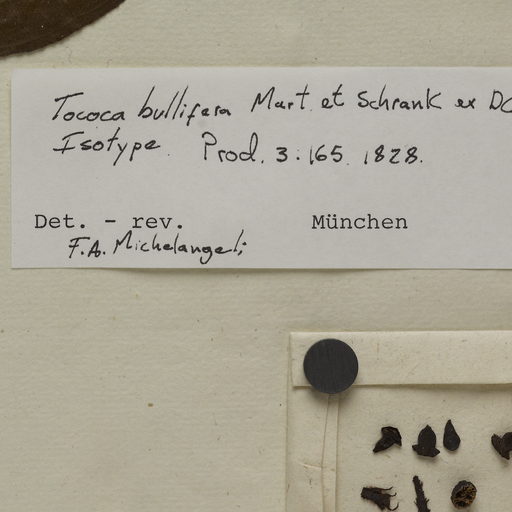 Tococa bullifera Mart. et Schrank ex DC
Isotype. Prod. 3:165. 1828.
Det. - rev. München
F.A. Michelangeli